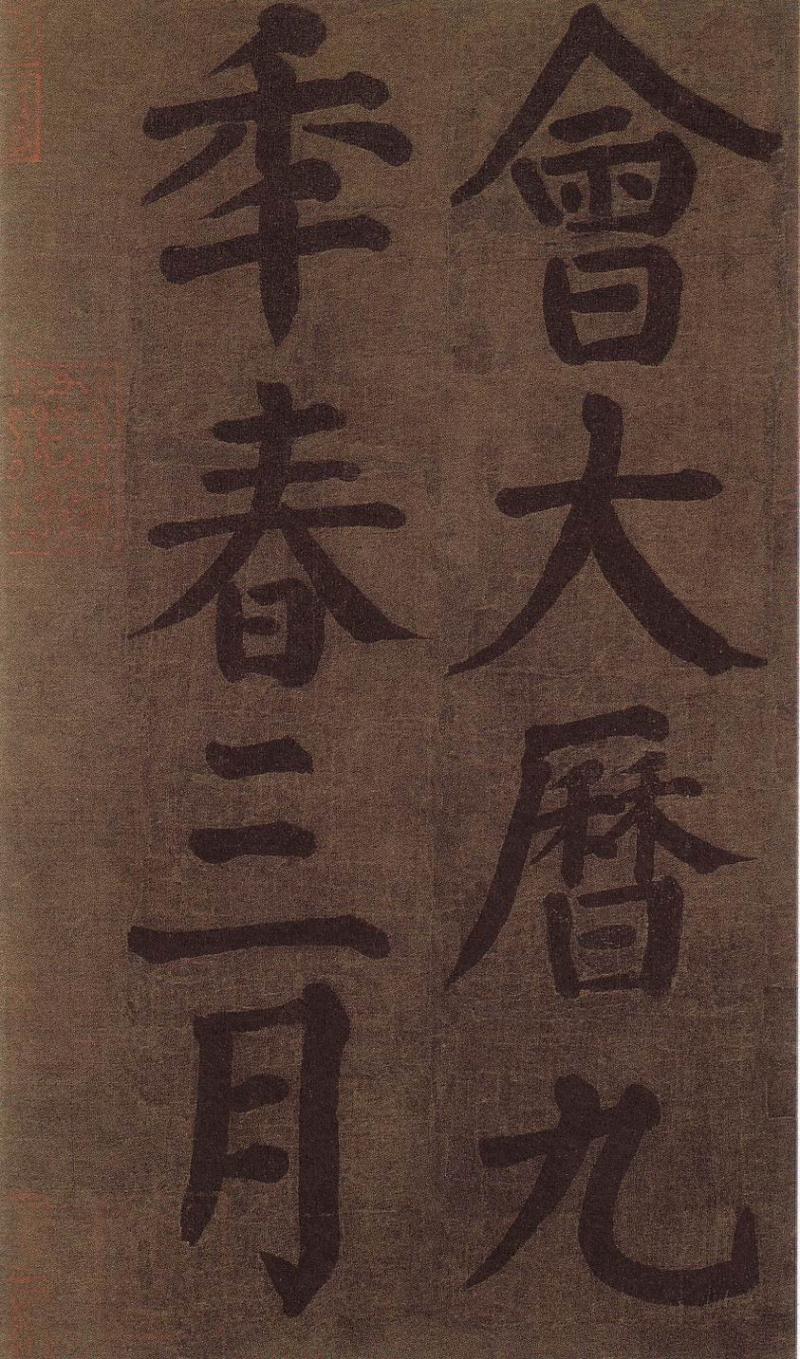 會大曆九
年春三月